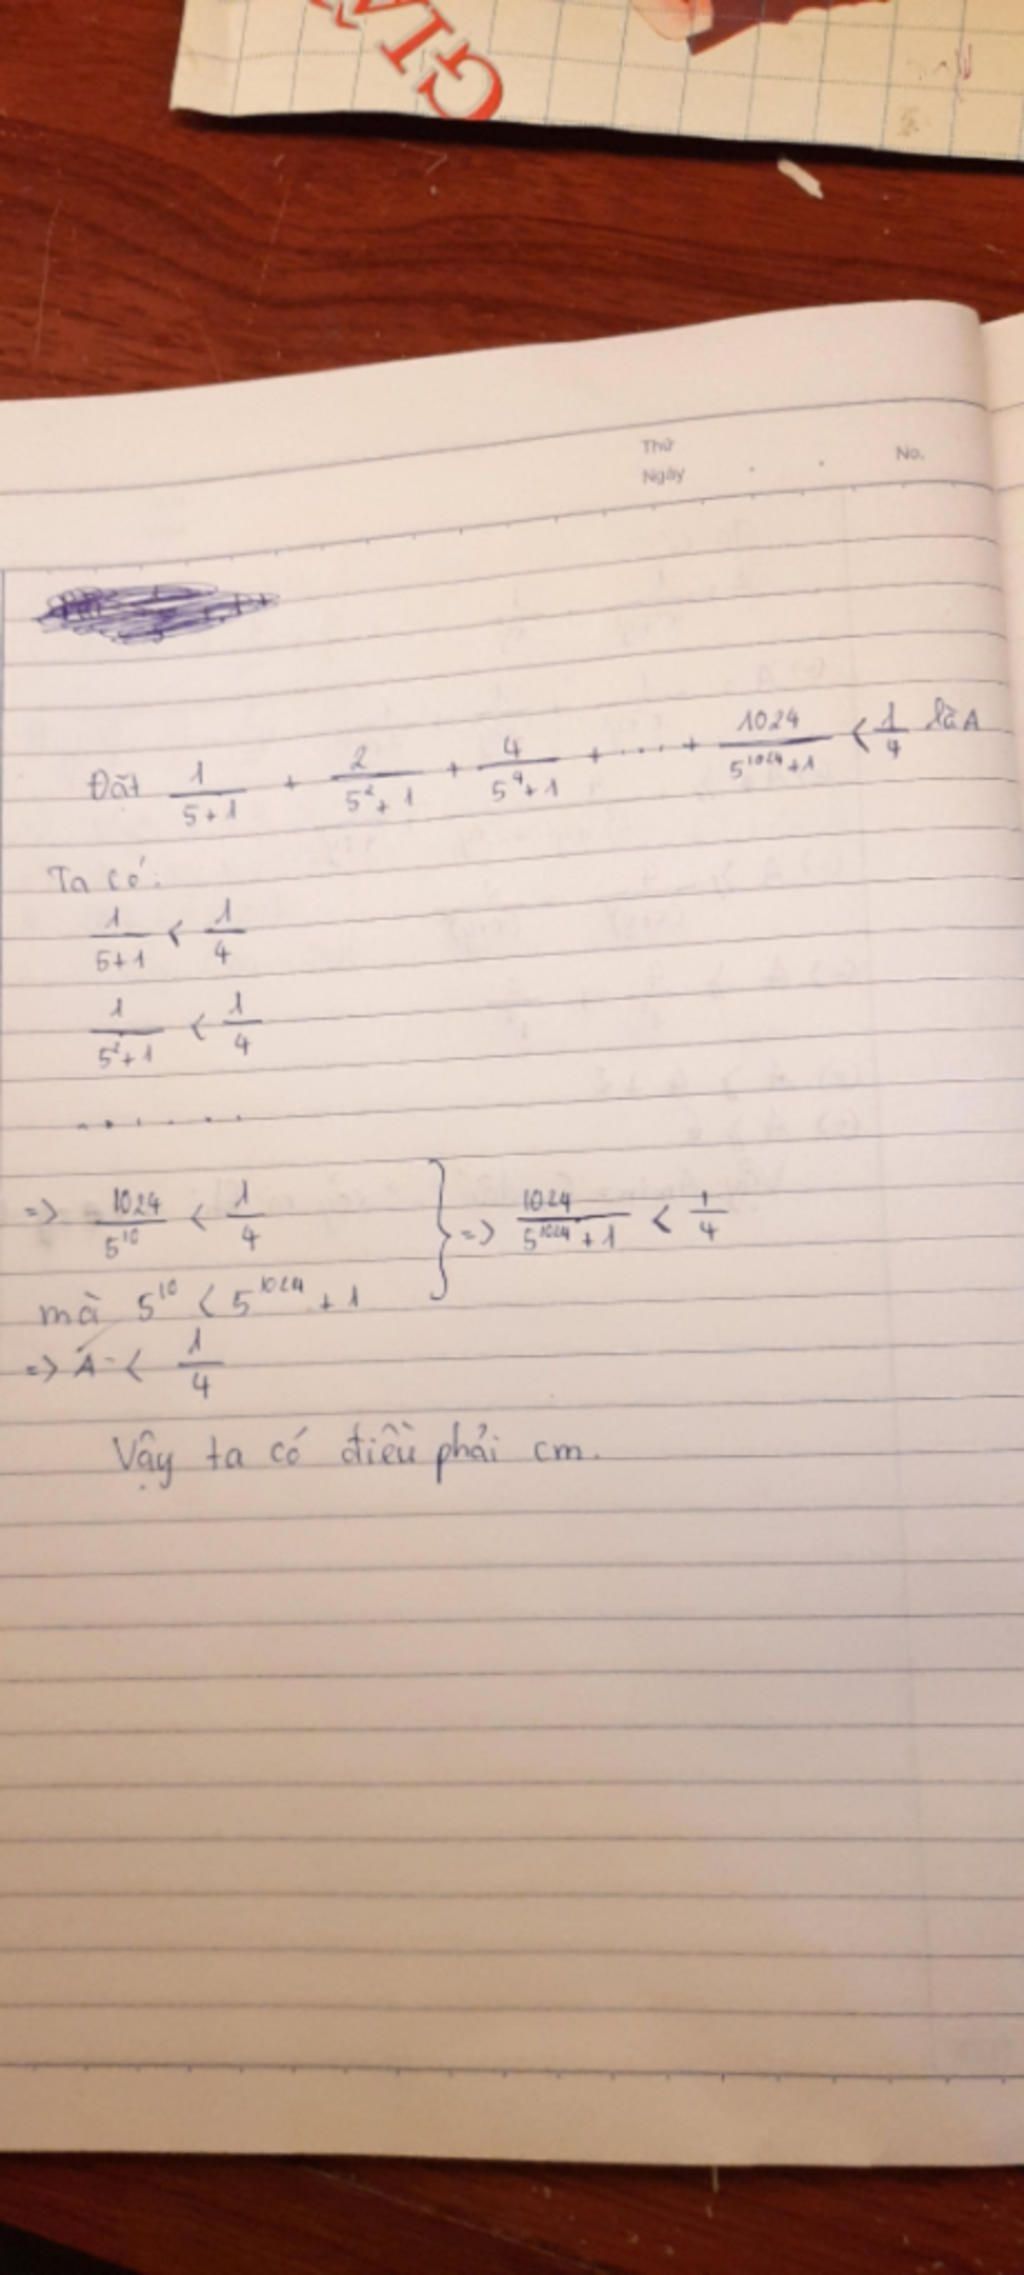 GIẤ
Thứ
Ngày . . No.
Đặt 1/(5+1) + 2/(5²+1) + 4/(5⁴+1) + .... + 1024/(5¹⁰²⁴+1) < 1/4 là A
Ta có:
1/(5+1) < 1/4
1/(5²+1) < 1/4
.......
=> 1024/5¹⁰ < 1/4 } => 1024/(5¹⁰²⁴+1) < 1/4
mà 5¹⁰ < 5¹⁰²⁴ + 1
=> A < 1/4
Vậy ta có điều phải cm.